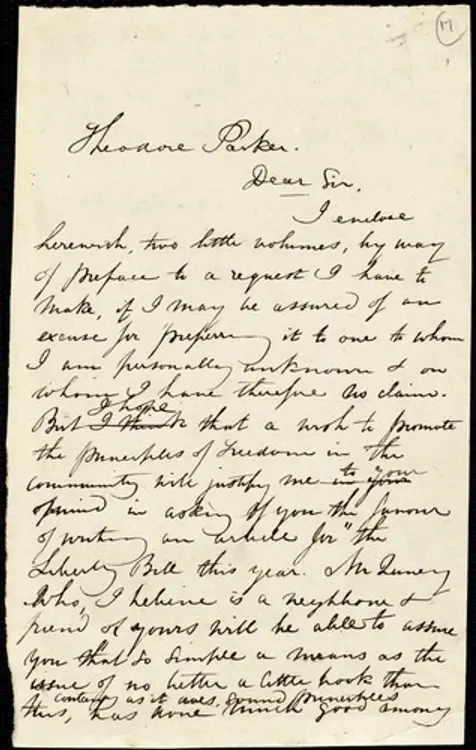 17
Theodore Parker.
Dear Sir,
I enclose
herewith, two little volumes, by way
of preface to a request I have to
make, if I may be assured of an
excuse for preferring it to one to whom
I am personally unknown & on
whom I have therefore no claim.
I hope
But I think that a wish to promote
the principles of Freedom in the
to your
community will justify me in your
in asking of you the favour
of writing an article for "the
Liberty Bell this year. Mr Quincy
who, I believe is a neighbour &
friend of yours will be able to assure
you that so simple a means as the
issue of no better a little book than
containing as it does, sound principles
this, has done much good among